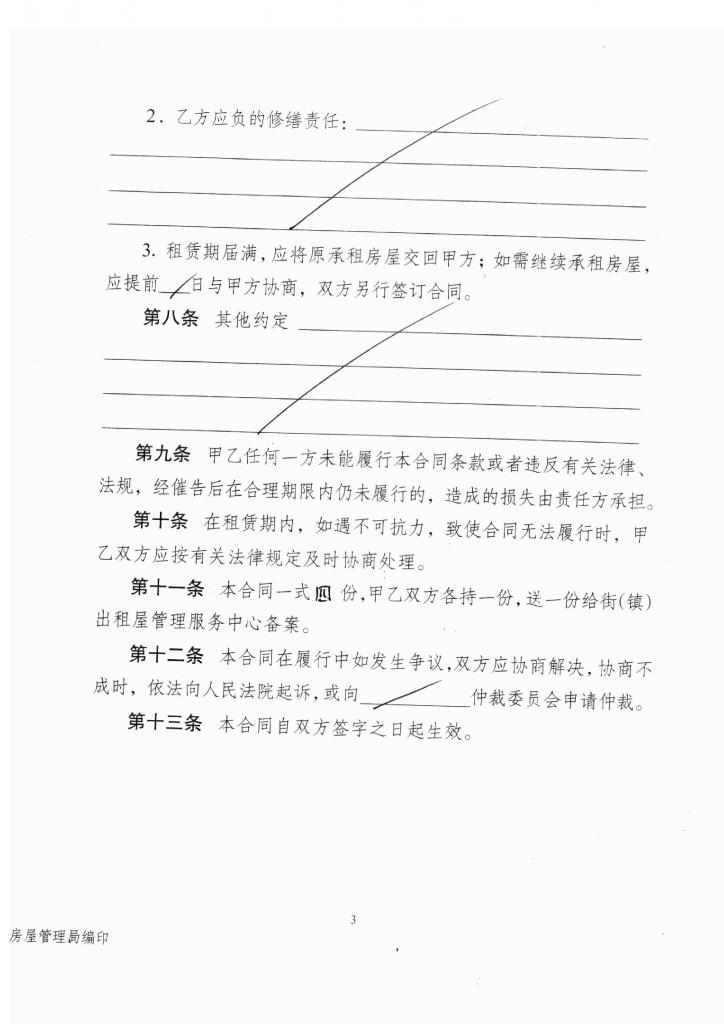 2. 乙方应负的修缮责任：
3. 租赁期届满，应将原承租房屋交回甲方；如需继续承租房屋，
应提前 日与甲方协商，双方另行签订合同。
第八条 其他约定
第九条 甲乙任何一方未能履行本合同条款或者违反有关法律、
法规，经催告后在合理期限内仍未履行的，造成的损失由责任方承担。
第十条 在租赁期内，如遇不可抗力，致使合同无法履行时，甲
乙双方应按有关法律规定及时协商处理。
第十一条 本合同一式四份，甲乙双方各持一份，送一份给街(镇)
出租屋管理服务中心备案。
第十二条 本合同在履行中如发生争议，双方应协商解决，协商不
成时，依法向人民法院起诉，或向 仲裁委员会申请仲裁。
第十三条 本合同自双方签字之日起生效。
3
房屋管理局编印